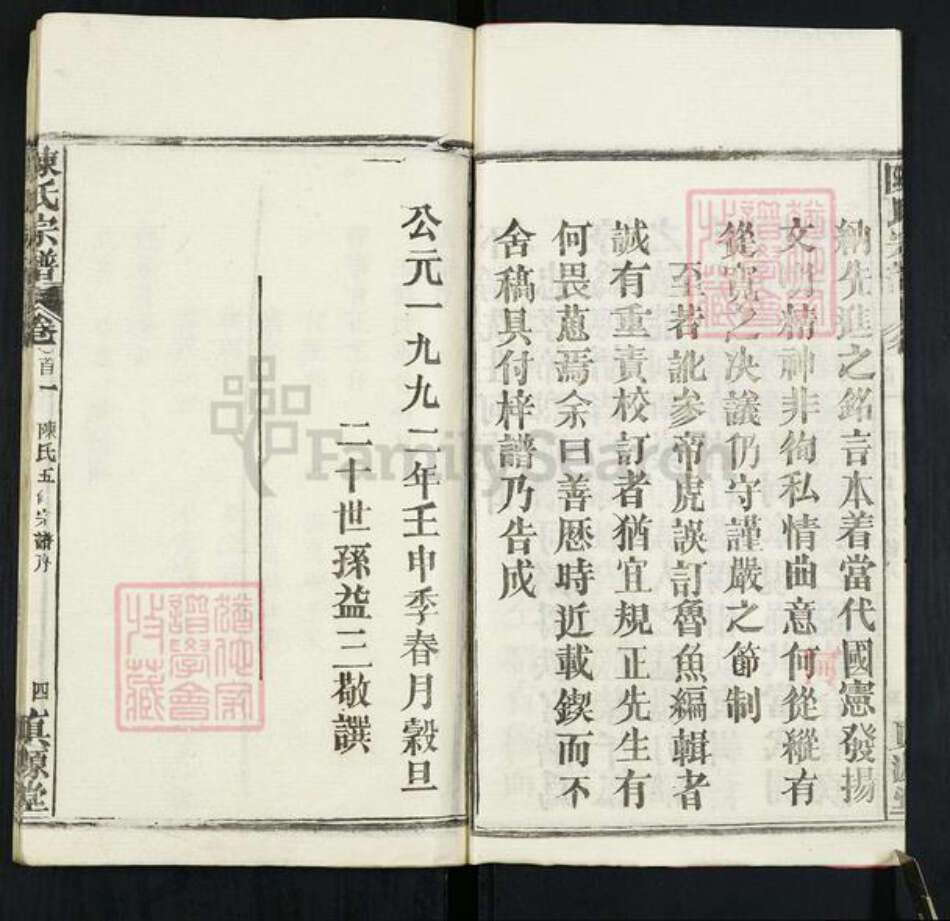 納先進之銘言本着當代國憲發揚
文明精神非徇私情曲意何從縱有
從寬之決議仍守謹嚴之節制
至若訛參帝虎誤訂魯魚編輯者
誠有重責校訂者猶宜規正先生有
何畏葸焉余曰善歷時近載鍥而不
舍稿具付梓譜乃告成
公元一九九二年壬申季春月穀旦
二十世孫益三敬譔
陳氏宗譜
卷首一
陳氏五修宗譜序
四
真源堂
FamilySearch
譜學會
收藏